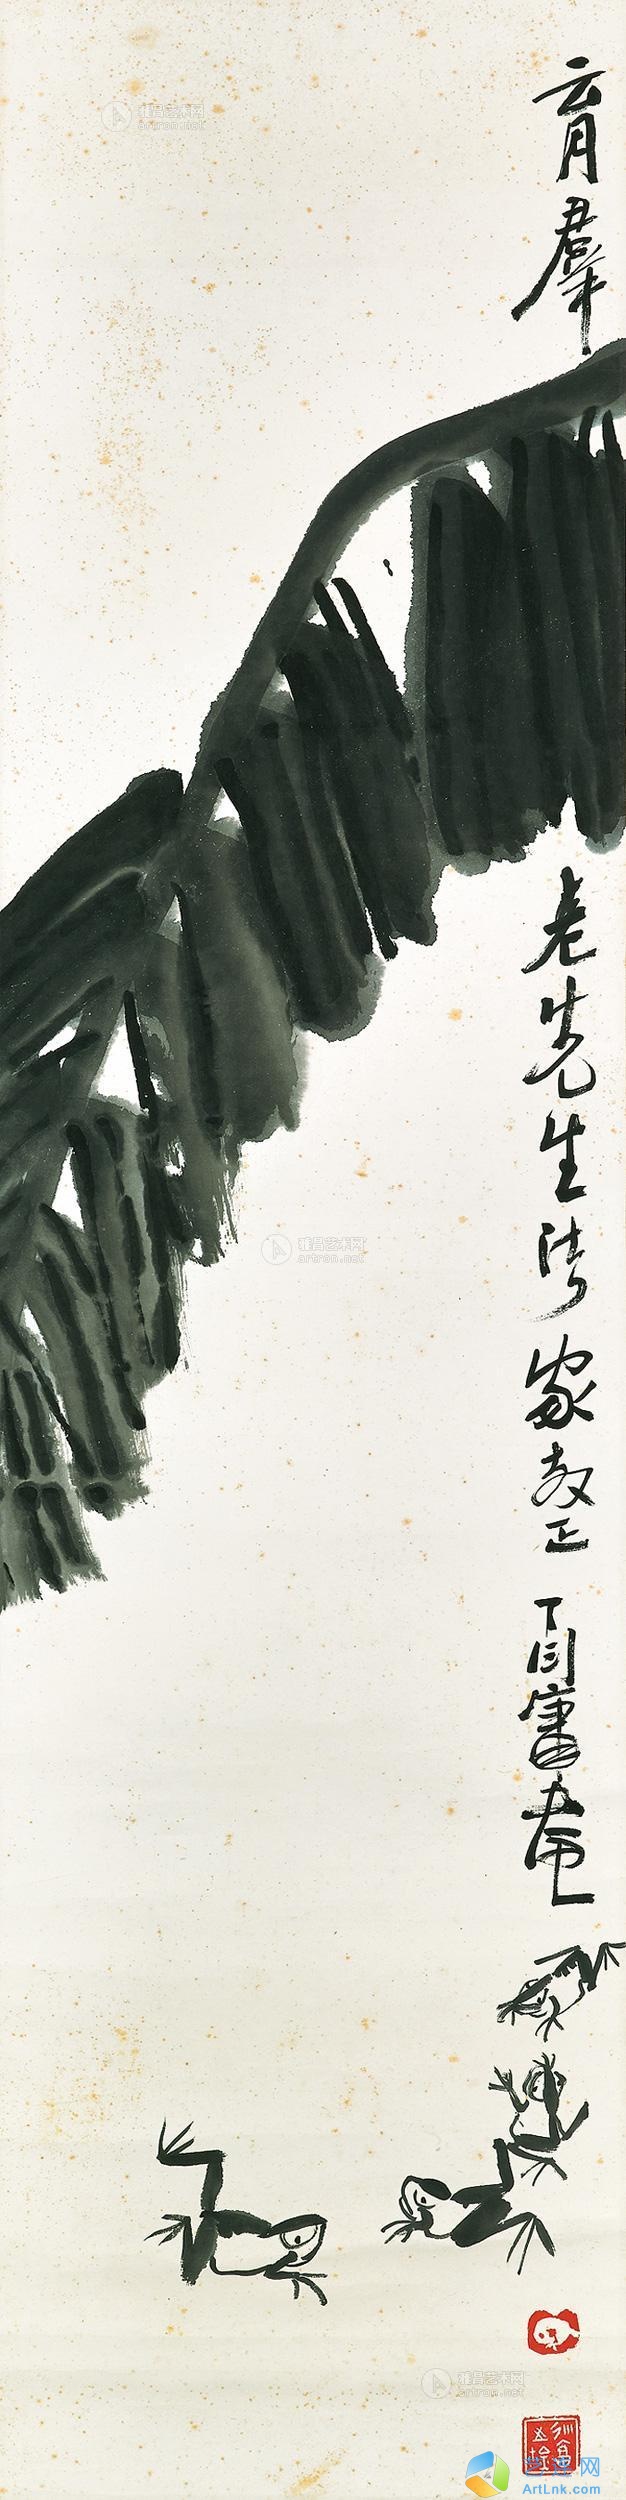 育羣
老先生法家教正
丁衍庸画
雅昌艺术网
artron.net
雅昌艺术网
artron.net
雅昌艺术网
artron.net
ArtLnk.com